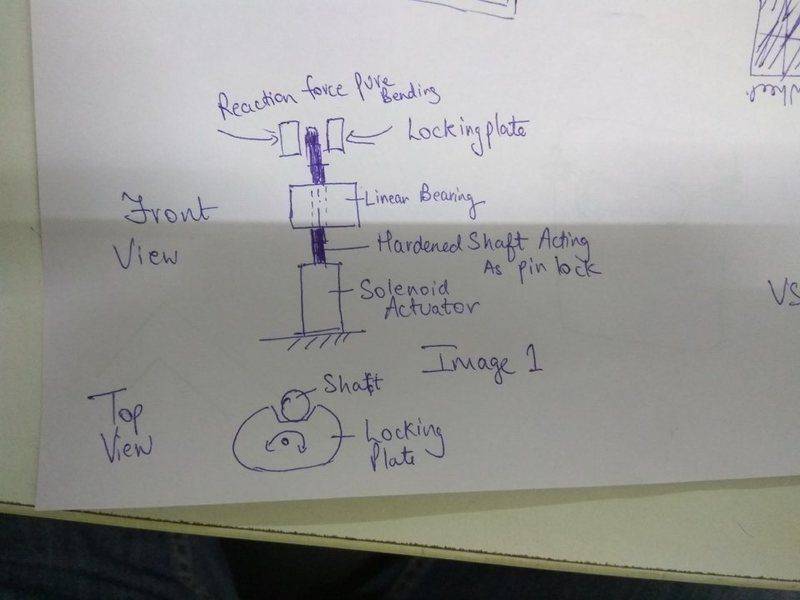 Reaction force pure
Bending
Locking plate
Linear Bearing
Front
View
Hardened Shaft Acting
As pin lock
Solenoid
Actuator
VS
Image 1
Shaft
Top
View
Locking
Plate